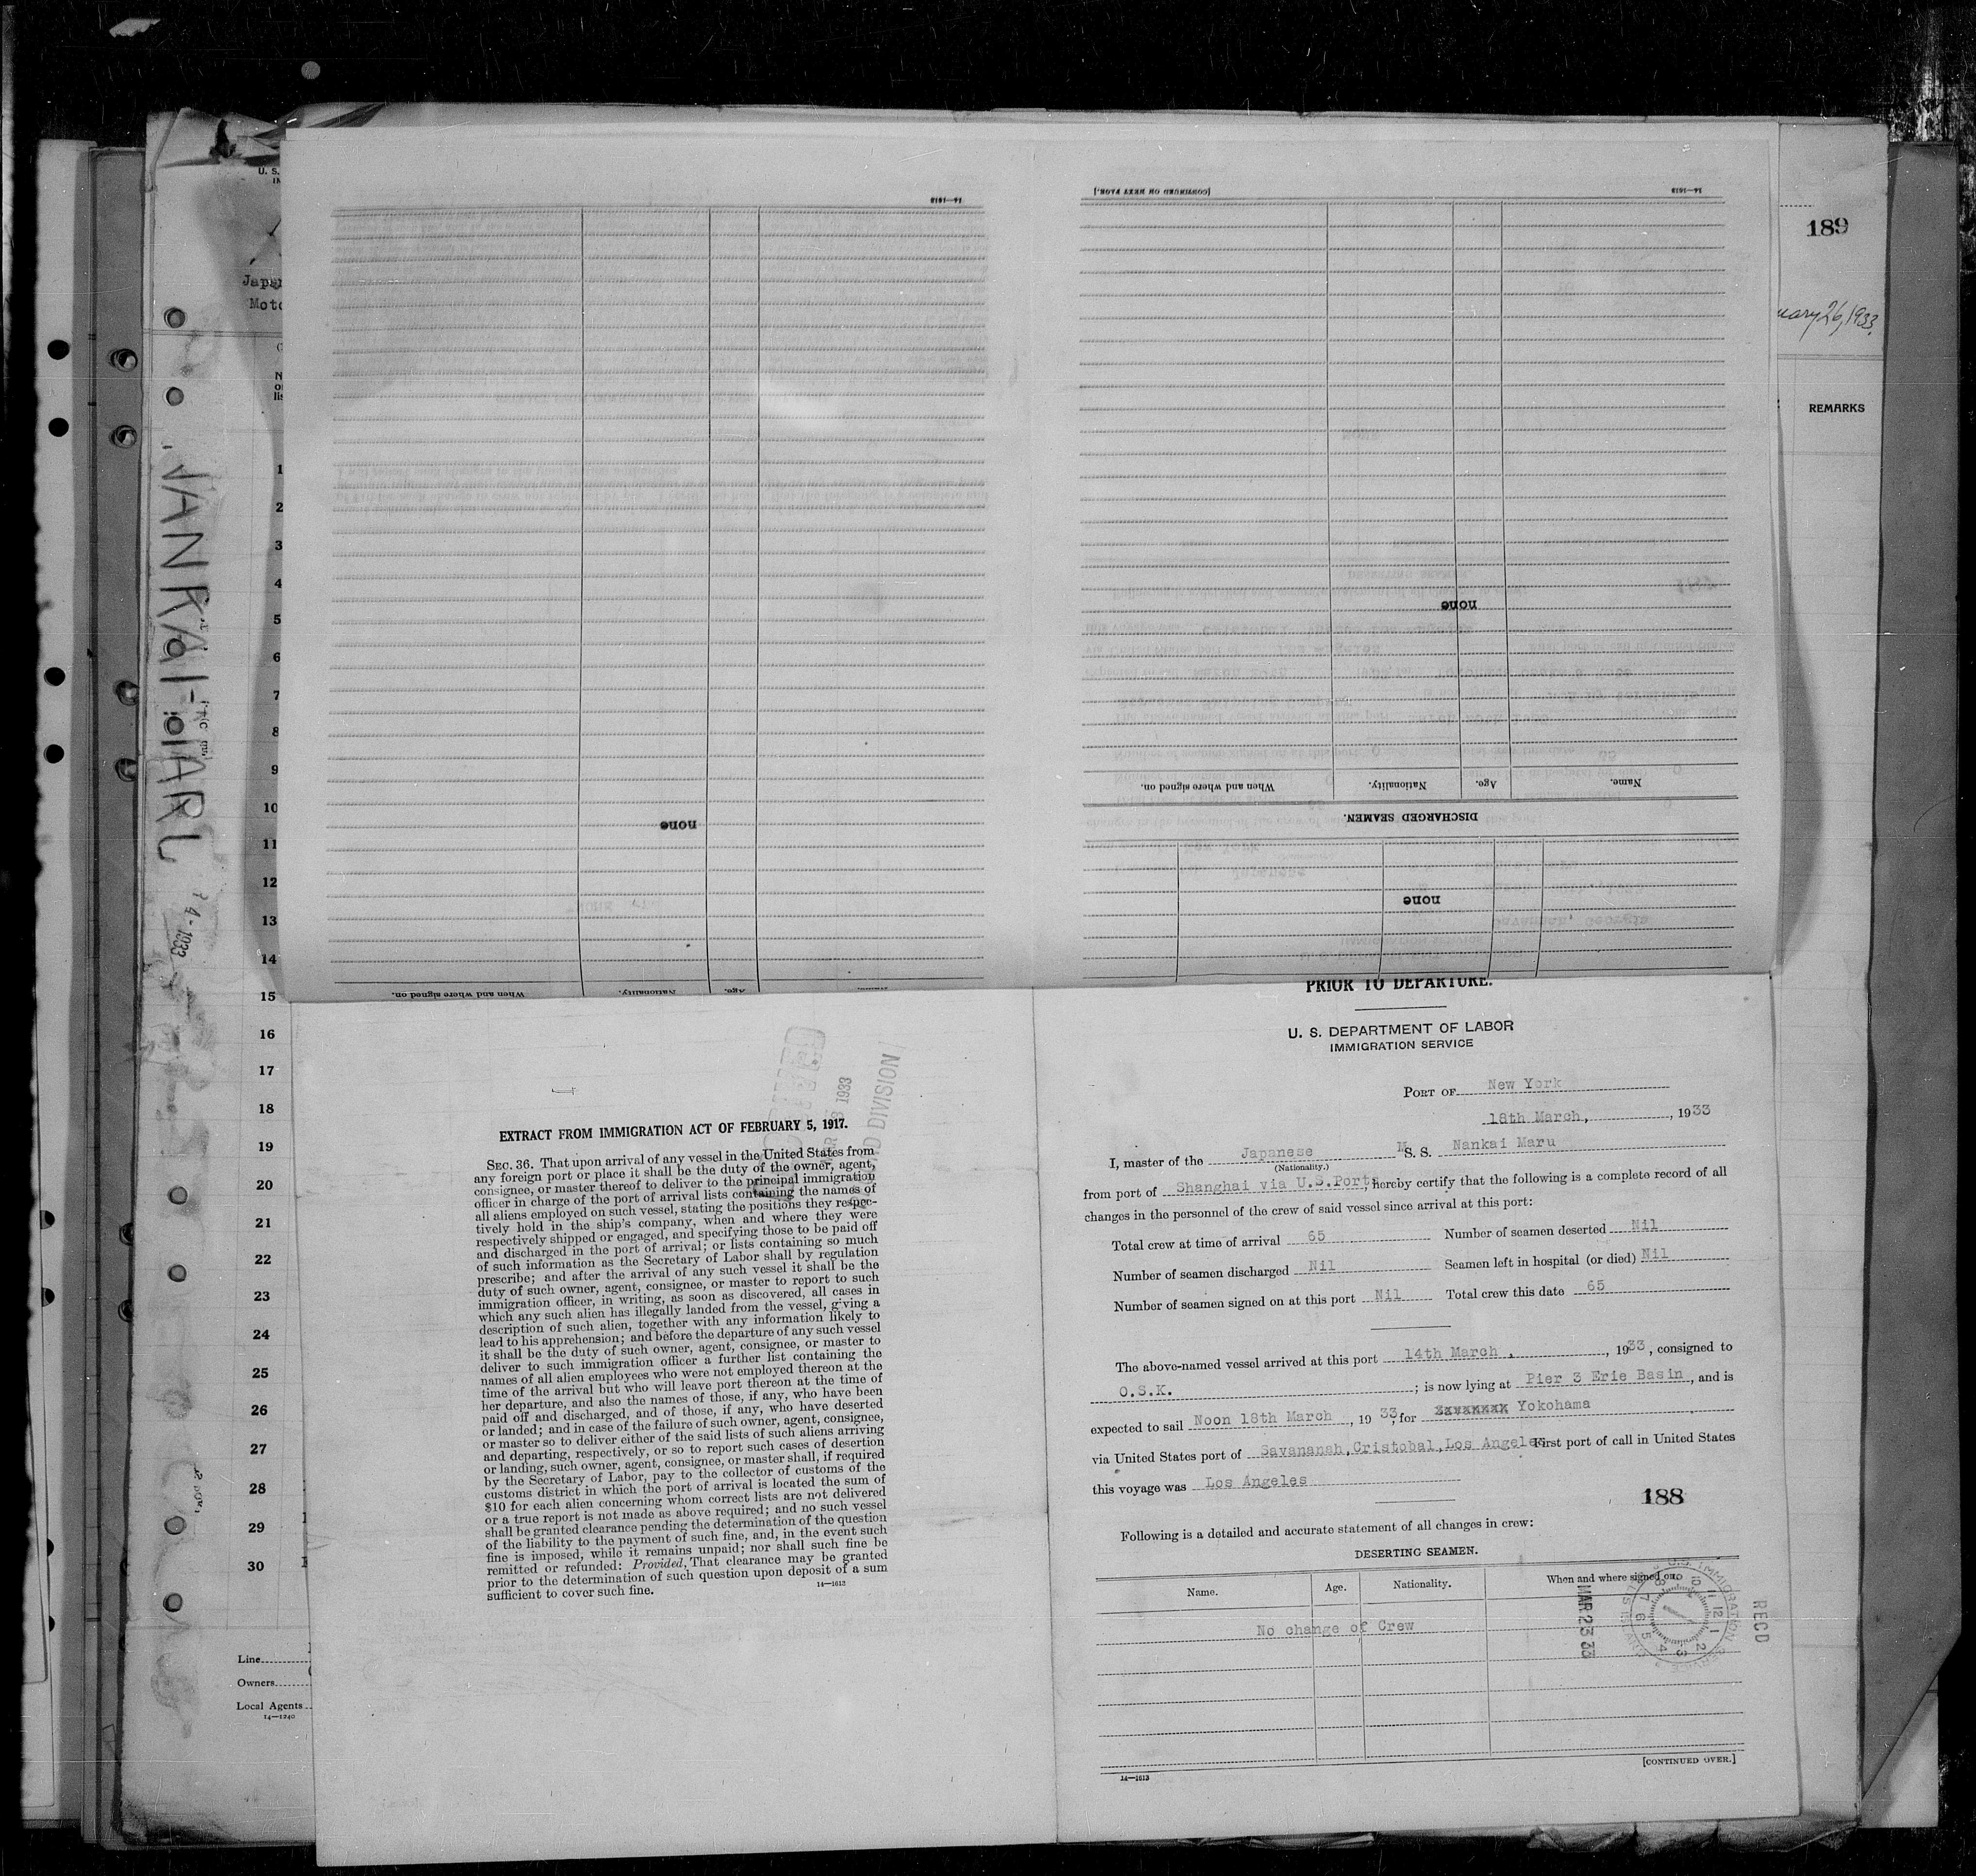 189
uary 26, 1933.
REMARKS
U. S.
Japan
Moto
1
2
3
4
5
6
7
8
9
10
11
12
13
14
15
16
17
18
19
20
21
22
23
24
25
26
27
28
29
30
Line
Owners
Local Agents
14—1240
14—1613
none
When and where signed on.
Nationality.
Age.
[CONTINUED ON NEXT PAGE.]
14—1613
none
Name.
Age.
Nationality.
When and where signed on.
DISCHARGED SEAMEN.
none
EXTRACT FROM IMMIGRATION ACT OF FEBRUARY 5, 1917.
SEC. 36. That upon arrival of any vessel in the United States from
any foreign port or place it shall be the duty of the owner, agent,
consignee, or master thereof to deliver to the principal immigration
officer in charge of the port of arrival lists containing the names of
all aliens employed on such vessel, stating the positions they respec-
tively hold in the ship's company, when and where they were
respectively shipped or engaged, and specifying those to be paid off
and discharged in the port of arrival; or lists containing so much
of such information as the Secretary of Labor shall by regulation
prescribe; and after the arrival of any such vessel it shall be the
duty of such owner, agent, consignee, or master to report to such
immigration officer, in writing, as soon as discovered, all cases in
which any such alien has illegally landed from the vessel, giving a
description of such alien, together with any information likely to
lead to his apprehension; and before the departure of any such vessel
it shall be the duty of such owner, agent, consignee, or master to
deliver to such immigration officer a further list containing the
names of all alien employees who were not employed thereon at the
time of the arrival but who will leave port thereon at the time of
her departure, and also the names of those, if any, who have been
paid off and discharged, and of those, if any, who have deserted
or landed; and in case of the failure of such owner, agent, consignee,
or master so to deliver either of the said lists of such aliens arriving
and departing, respectively, or so to report such cases of desertion
or landing, such owner, agent, consignee, or master shall, if required
by the Secretary of Labor, pay to the collector of customs of the
customs district in which the port of arrival is located the sum of
$10 for each alien concerning whom correct lists are not delivered
or a true report is not made as above required; and no such vessel
shall be granted clearance pending the determination of the question
of the liability to the payment of such fine, and, in the event such
fine is imposed, while it remains unpaid; nor shall such fine be
remitted or refunded: Provided, That clearance may be granted
prior to the determination of such question upon deposit of a sum
sufficient to cover such fine.
14—1613
1933
DIVISION
PRIOR TO DEPARTURE.
U. S. DEPARTMENT OF LABOR
IMMIGRATION SERVICE
PORT OF New York
18th March, , 1933
I, master of the Japanese M S. S. Nankai Maru
(Nationality.)
from port of Shanghai via U.S.Port, hereby certify that the following is a complete record of all
changes in the personnel of the crew of said vessel since arrival at this port:
Total crew at time of arrival 65 Number of seamen deserted Nil
Number of seamen discharged Nil Seamen left in hospital (or died) Nil
Number of seamen signed on at this port Nil Total crew this date 65
The above-named vessel arrived at this port 14th March , , 1933, consigned to
O.S.K. ; is now lying at Pier 3 Erie Basin, and is
expected to sail Noon 18th March, 1933, for Yokohama
via United States port of Savananah,Cristobal,Los Angeles First port of call in United States
this voyage was Los Angeles
188
Following is a detailed and accurate statement of all changes in crew:
DESERTING SEAMEN.
Name. Age. Nationality. When and where signed on.
No change of Crew
MAR 23 33
U.S. IMMIGRATION SERVICE
RECD
[CONTINUED OVER.]
14—1613